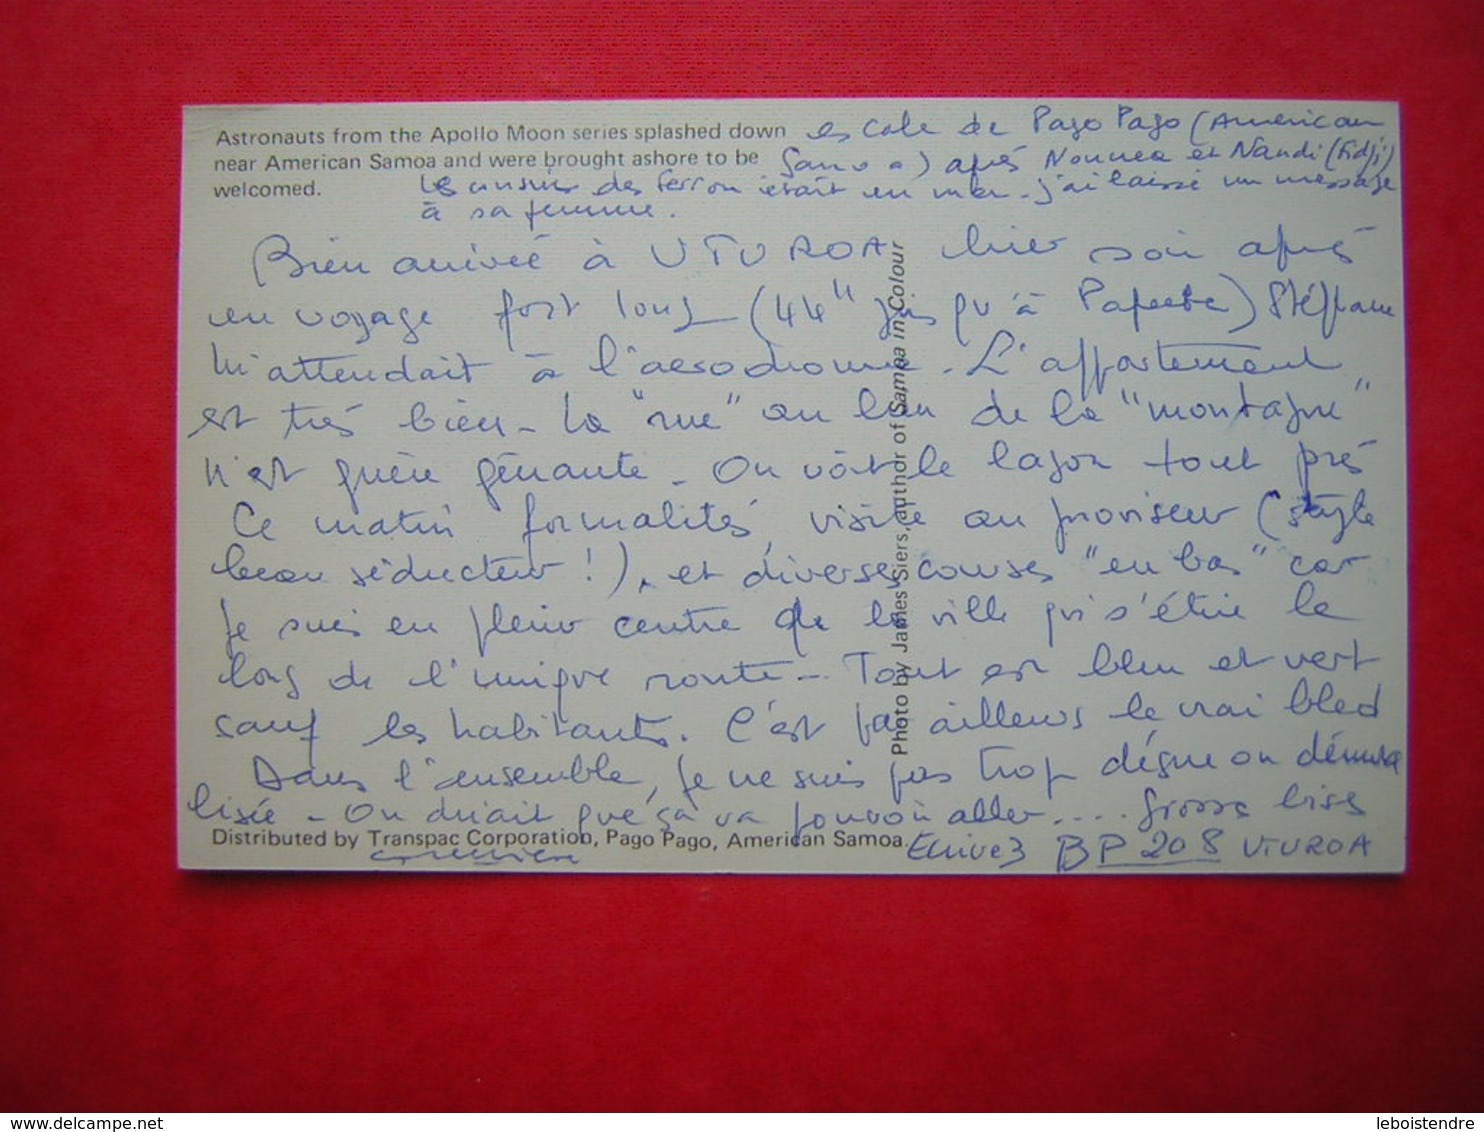 Astronauts from the Apollo Moon series splashed down
near American Samoa and were brought ashore to be
welcomed.
escale de Pago Pago (American
Samoa) après Noumea et Nandi (Fidji)
Le cousin des Ferron était en mer - j'ai laissé un message
à sa femme.
Bien arrivée à UTUROA hier soir après
un voyage fort long (44h jusqu'à Papeete) Stéphane
m'attendait à l'aérodrome. L'appartement
est très bien - La "rue" au lieu de la "montagne"
n'est guère gênante - On voit le lagon tout près
Ce matin formalités, visite au proviseur (style
beau séducteur !), et diverses courses "en bas" car
je suis en plein centre de la ville qui s'étire le
long de l'unique route - Tout est bleu et vert
sauf les habitants. C'est par ailleurs le vrai bled
Dans l'ensemble, je ne suis pas trop déçue ou démora
lisée - On dirait que ça va pouvoir aller.... Grosses bises
Ecrivez BP 208 UTUROA
Distributed by Transpac Corporation, Pago Pago, American Samoa.
Photo by James Siers, author of Samoa in Colour
leboistendre
www.delcampe.net